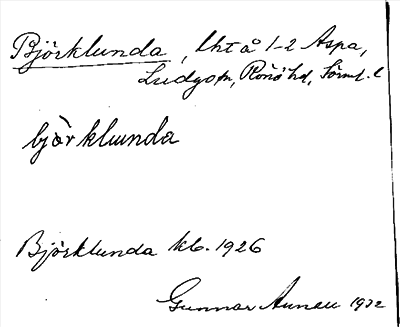 Björklunda, lht å 1-2 Aspa,
Ludgo sn, Rönö hd, Sörml. l
björklunda
Björklunda kb. 1926
Gunnar Auneu 1932